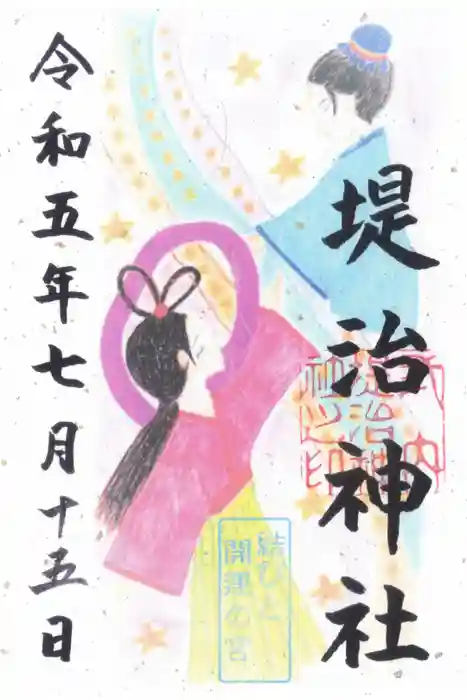 堤治神社
結びと
開運の宮
令和五年七月十五日